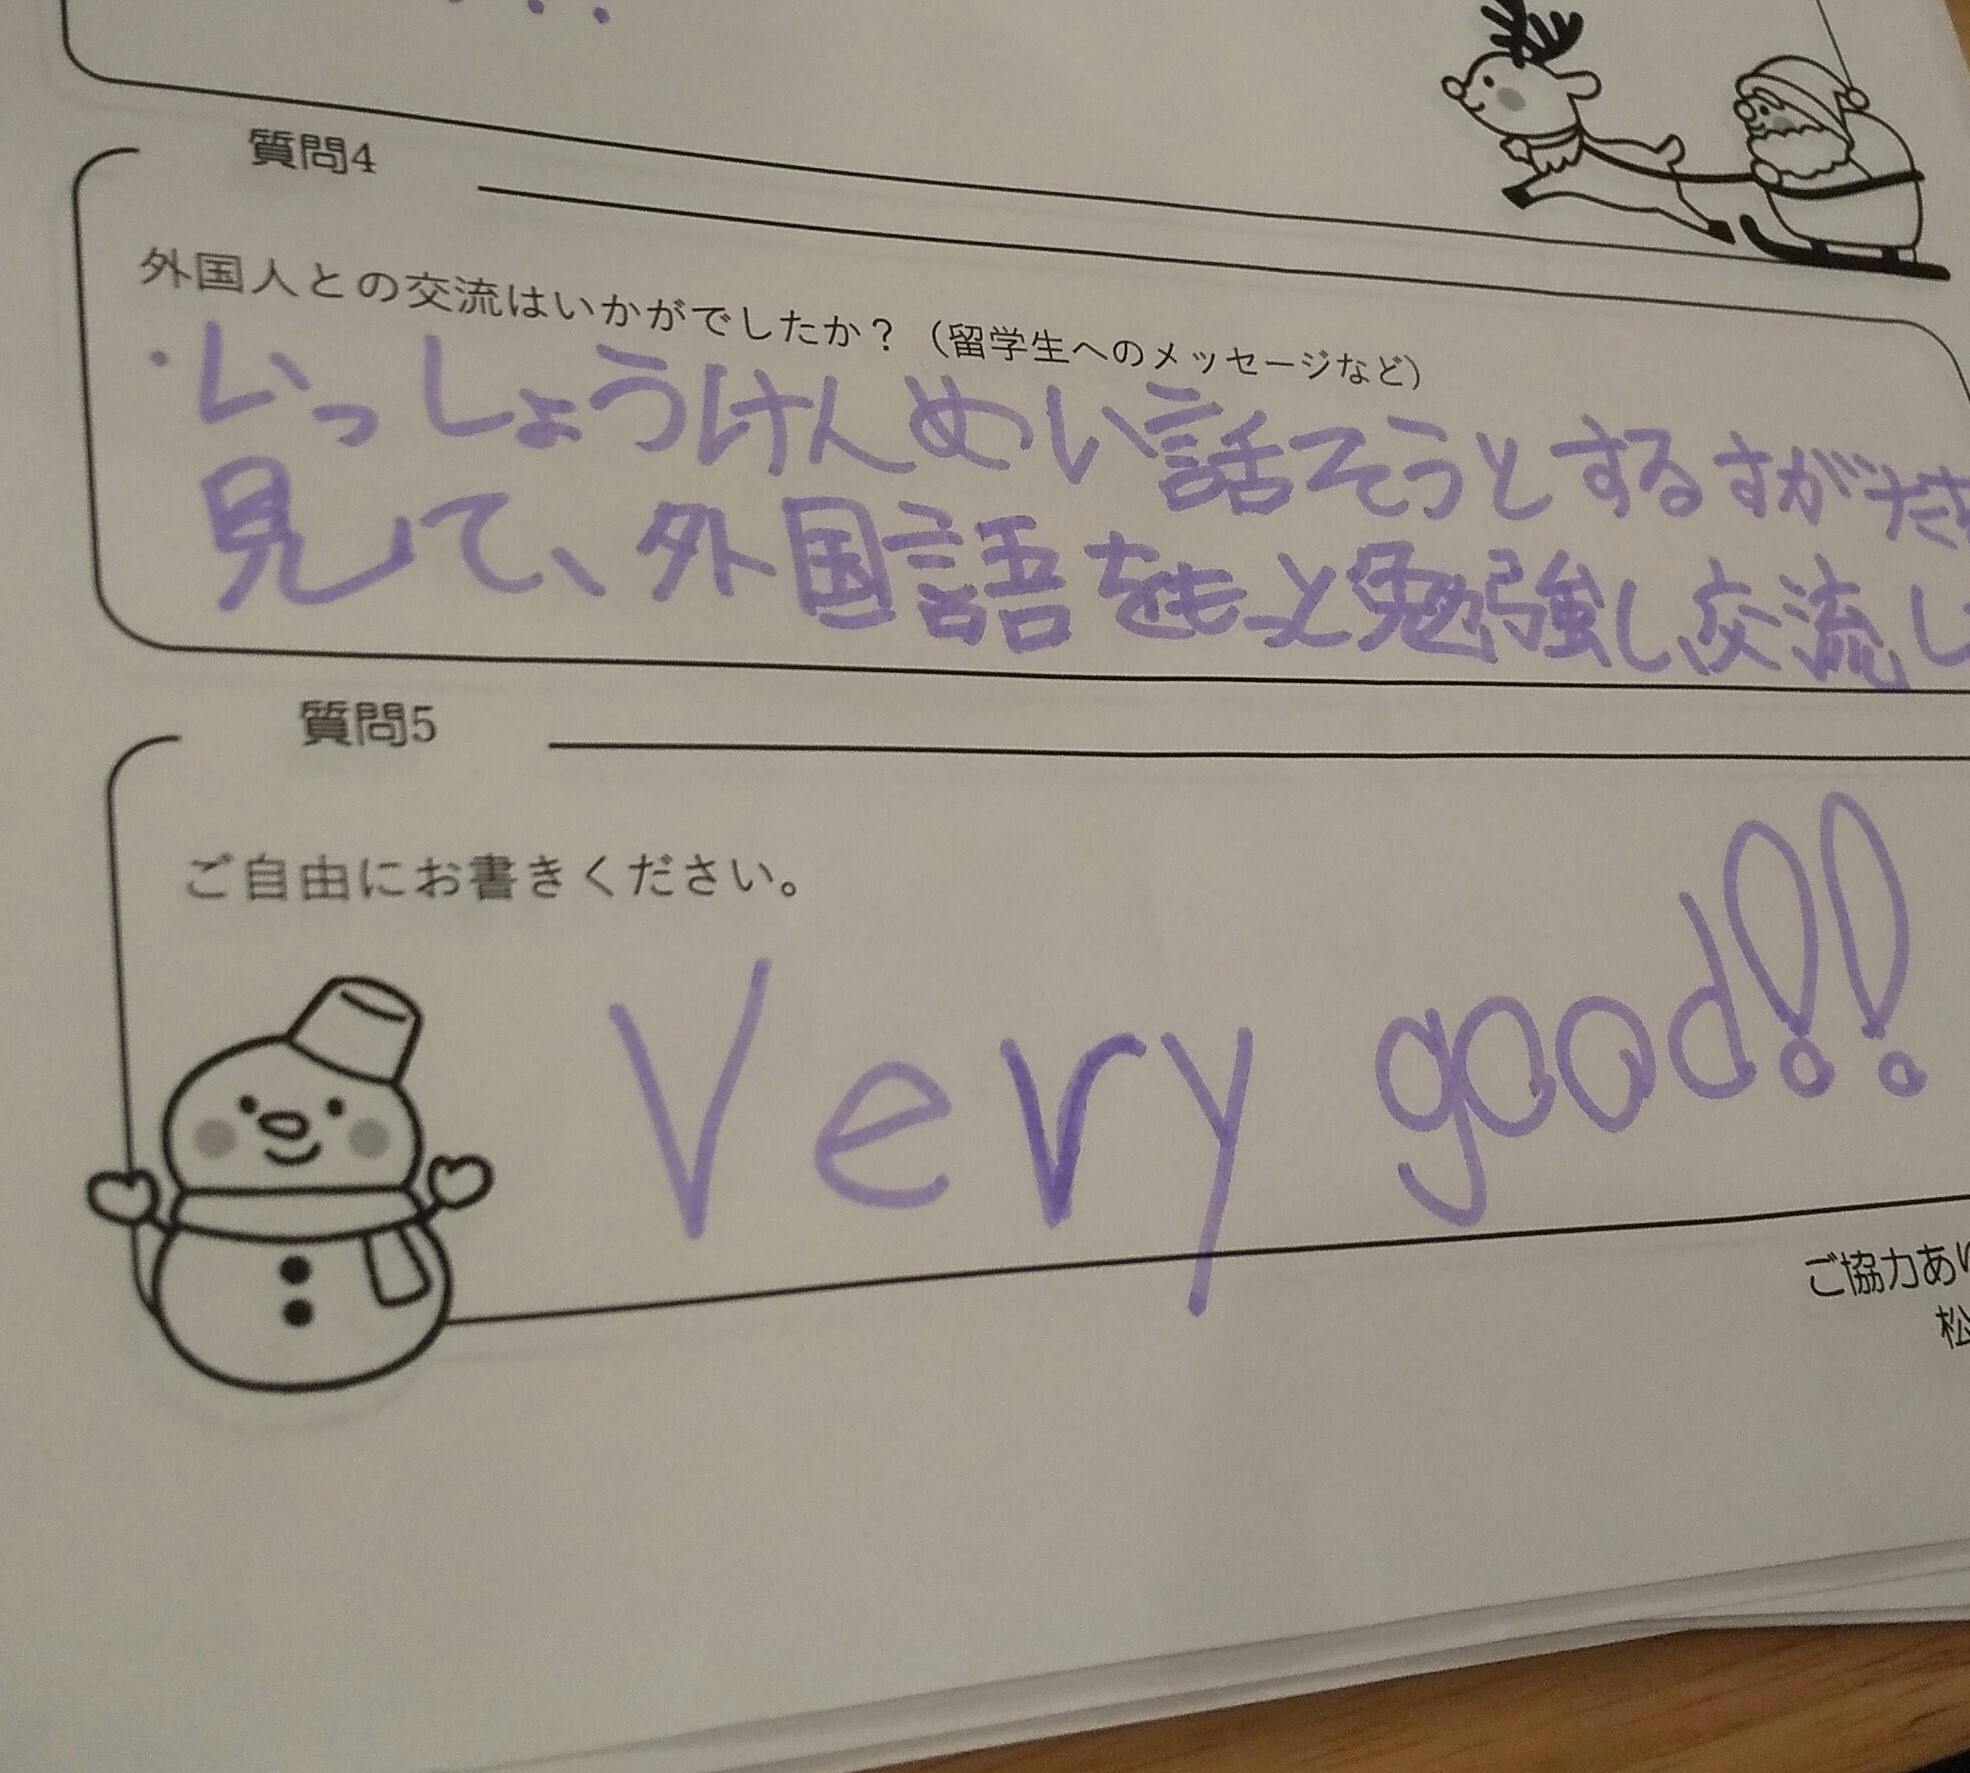 質問4
外国人との交流はいかがでしたか？（留学生へのメッセージなど）
・いっしょうけんめい話そうとするすがた
見て、外国語をもっと勉強し交流し
質問5
ご自由にお書きください。
Very good!!
ご協力あり
松